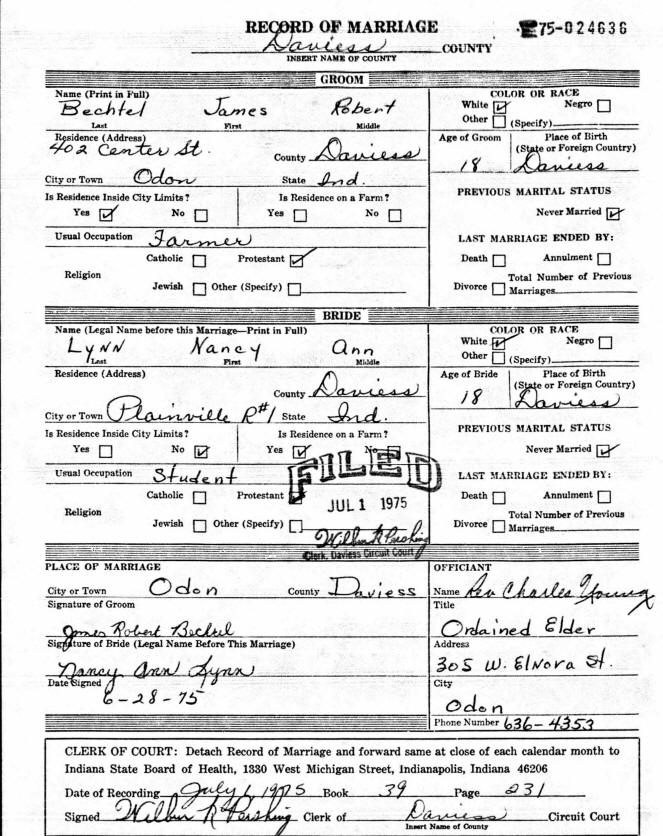 RECORD OF MARRIAGE
75-024636
Daviess COUNTY
INSERT NAME OF COUNTY
GROOM
Name (Print in Full)
Bechtel James Robert
Last First Middle
COLOR OR RACE
White Negro
Other (Specify)
Residence (Address)
402 Center St.
County Daviess
Age of Groom Place of Birth
(State or Foreign Country)
18 Daviess
City or Town Odon State Ind.
Is Residence Inside City Limits? Is Residence on a Farm?
Yes No Yes No
PREVIOUS MARITAL STATUS
Never Married
Usual Occupation Farmer
LAST MARRIAGE ENDED BY:
Religion
Catholic Protestant
Jewish Other (Specify)
Death Annulment
Total Number of Previous
Divorce Marriages
BRIDE
Name (Legal Name before this Marriage—Print in Full)
Lynn Nancy Ann
Last First Middle
COLOR OR RACE
White Negro
Other (Specify)
Residence (Address)
County Daviess
Age of Bride Place of Birth
(State or Foreign Country)
18 Daviess
City or Town Plainville R#1 State Ind.
Is Residence Inside City Limits? Is Residence on a Farm?
Yes No Yes No
PREVIOUS MARITAL STATUS
Never Married
Usual Occupation Student
FILED
JUL 1 1975
Wilbur R Pershing
Clerk, Daviess Circuit Court
LAST MARRIAGE ENDED BY:
Religion
Catholic Protestant
Jewish Other (Specify)
Death Annulment
Total Number of Previous
Divorce Marriages
PLACE OF MARRIAGE
City or Town Odon County Daviess
Signature of Groom
James Robert Bechtel
Signature of Bride (Legal Name Before This Marriage)
Nancy Ann Lynn
Date Signed
6-28-75
OFFICIANT
Name Rev Charles Young
Title
Ordained Elder
Address
305 W. Elnora St.
City
Odon
Phone Number 636-4353
CLERK OF COURT: Detach Record of Marriage and forward same at close of each calendar month to
Indiana State Board of Health, 1330 West Michigan Street, Indianapolis, Indiana 46206
Date of Recording July 1, 1975 Book 39 Page 231
Signed Wilbur R Pershing Clerk of Daviess Circuit Court
Insert Name of County